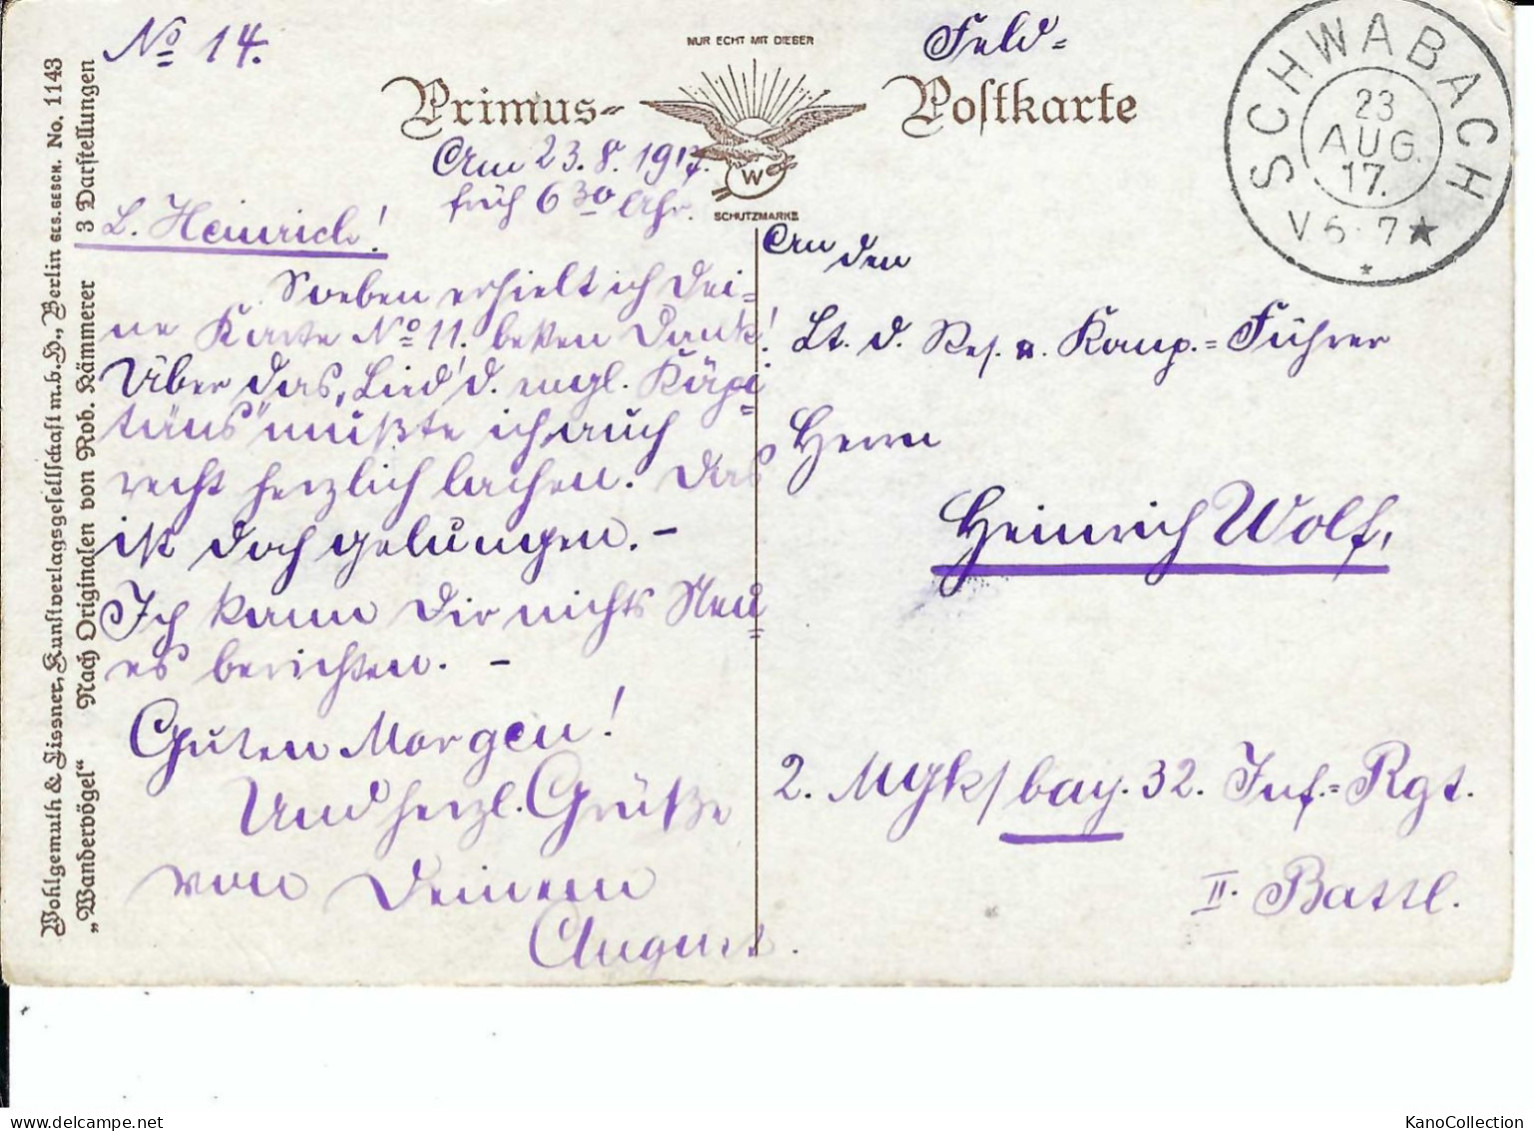 No 14.
Feld-
NUR ECHT MIT DIESER
Primus-
Postkarte
W
SCHUTZMARKE
SCHWABACH
23
AUG.
17.
V 6-7 ★
Wohlgemuth & Lissner, Kunstverlagsgesellschaft m.b.H., Berlin GES.GESCH. No. 1143
„Wandervögel“ Nach Originalen von Rob. Kämmerer 3 Darstellungen
Am 23.8.1917.
früh 6 30 Uhr.
L. Heinrich!
Soeben erhielt ich Dei-
ne Karte No 11. besten Dank!
Über das „Lied d. engl. Kapi-
täns“ mußte ich auch
recht herzlich lachen. Das
ist doch gelungen. –
Ich kann Dir nichts Neu-
es berichten. –
Guten Morgen!
Und herzl. Grüße
von Deinem
August.
An den
Lt. d. Res. u. Komp.-Führer
Herrn
Heinrich Wolf,
2. MGK/bay. 32. Inf.-Rgt.
II. Battl.
KanoCollection